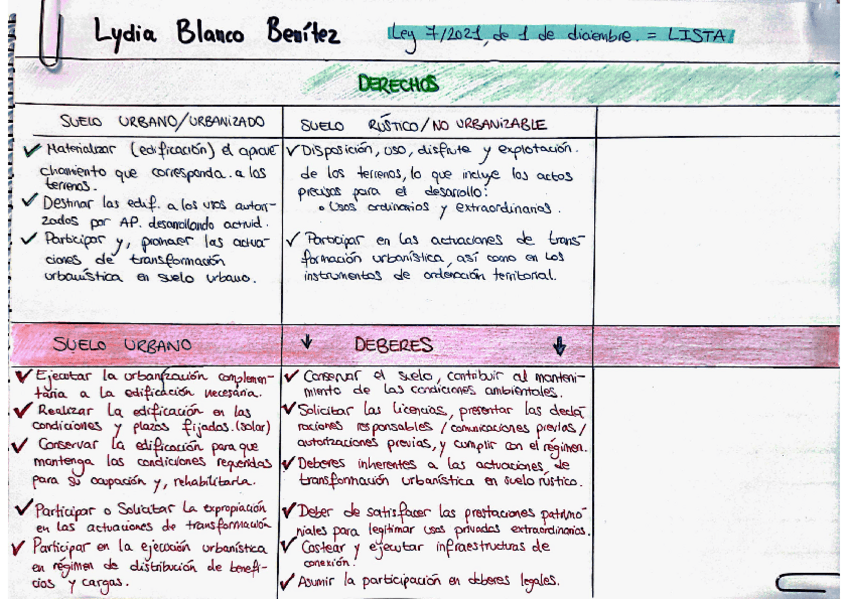 Lydia Blanco Benítez
Ley 7/2021, de 1 de diciembre. = LISTA
DERECHOS
SUELO URBANO/URBANIZADO
✓ Materializar (edificación) el aprove
chamiento que corresponda a los
terrenos.
✓ Destinar las edif. a los usos autori-
zados por AP. desarrollando activid.
✓ Participar y, promover las actua-
ciones de transformación
urbanística en suelo urbano.
SUELO RÚSTICO/NO URBANIZABLE
✓ Disposición, uso, disfrute y explotación.
de los terrenos, lo que incluye los actos
precisos para el desarrollo:
• Usos ordinarios y extraordinarios.
✓ Participar en las actuaciones de trans-
formación urbanística, así como en los
instrumentos de ordenación territorial.
SUELO URBANO ↓ DEBERES ↓
✓ Ejecutar la urbanización complemen-
taria a la edificación necesaria.
✓ Realizar la edificación en las
condiciones y plazos fijados. (solar)
✓ Conservar la edificación para que
mantenga las condiciones requeridas
para su ocupación y, rehabilitarla.
✓ Participar o Solicitar la expropiación
en las actuaciones de transformación
✓ Participar en la ejecución urbanística
en régimen de distribución de benefi-
cios y cargas.
✓ Conservar el suelo, contribuir al manteni-
miento de las condiciones ambientales.
✓ Solicitar las licencias, presentar las decla-
raciones responsables / comunicaciones previas /
autorizaciones previas, y cumplir con el régimen.
✓ Deberes inherentes a las actuaciones, de
transformación urbanística en suelo rústico.
✓ Deber de satisfacer las prestaciones patrimo-
niales para legitimar usos privados extraordinarios.
✓ Costear y ejecutar infraestructuras de
conexión.
✓ Asumir la participación en deberes legales.